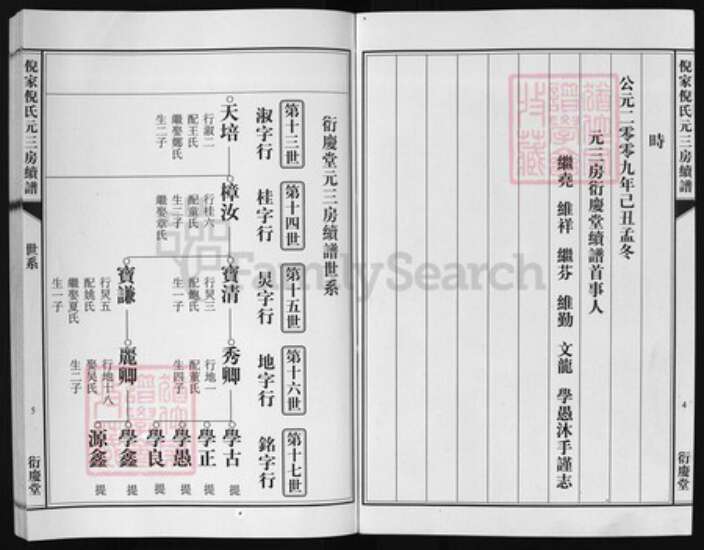 倪家倪氏元三房續譜
4
衍慶堂
時
公元二零零九年己丑孟冬
元三房衍慶堂續譜首事人
繼堯 維祥 繼芬 維勤 文龍 學愚沐手謹志
衍慶堂元三房續譜世系
第十三世
淑字行
天培
行淑二
配王氏
繼娶鄭氏
生二子
第十四世
桂字行
樟汝
行桂六
配童氏
生二子
繼娶章氏
第十五世
炅字行
寶清
行炅三
配鮑氏
生一子
寶謙
行炅五
配姚氏
繼娶夏氏
生一子
第十六世
地字行
秀卿
行地一
配董氏
生四子
麗卿
行地十八
娶吳氏
生二子
第十七世
銘字行
學古 提
學正 提
學愚 提
學良 提
學鑫 提
源鑫 提
倪家倪氏元三房續譜
世系
5
衍慶堂
FamilySearch